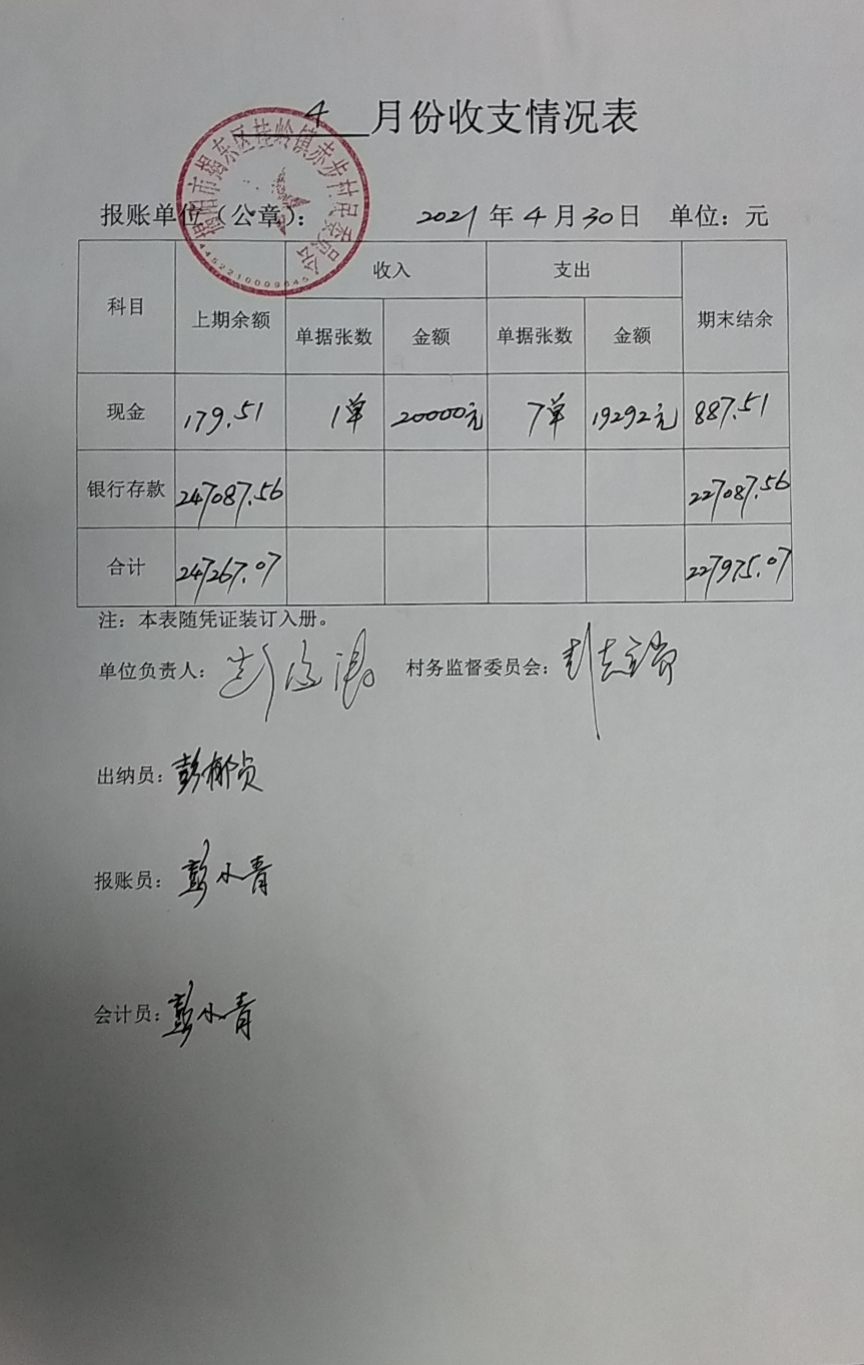 4 月份收支情况表
揭阳市揭东区桂岭镇赤步村民委员会
报账单位（公章）： 2021 年 4 月 30 日 单位：元
科目 上期余额 收入 支出 期末结余
单据张数 金额 单据张数 金额
现金 179.51 1单 20000元 7单 19292元 887.51
银行存款 247087.56 227087.56
合计 247267.07 227975.07
注：本表随凭证装订入册。
单位负责人： 村务监督委员会：
出纳员：彭
报账员：彭小青
会计员：彭小青